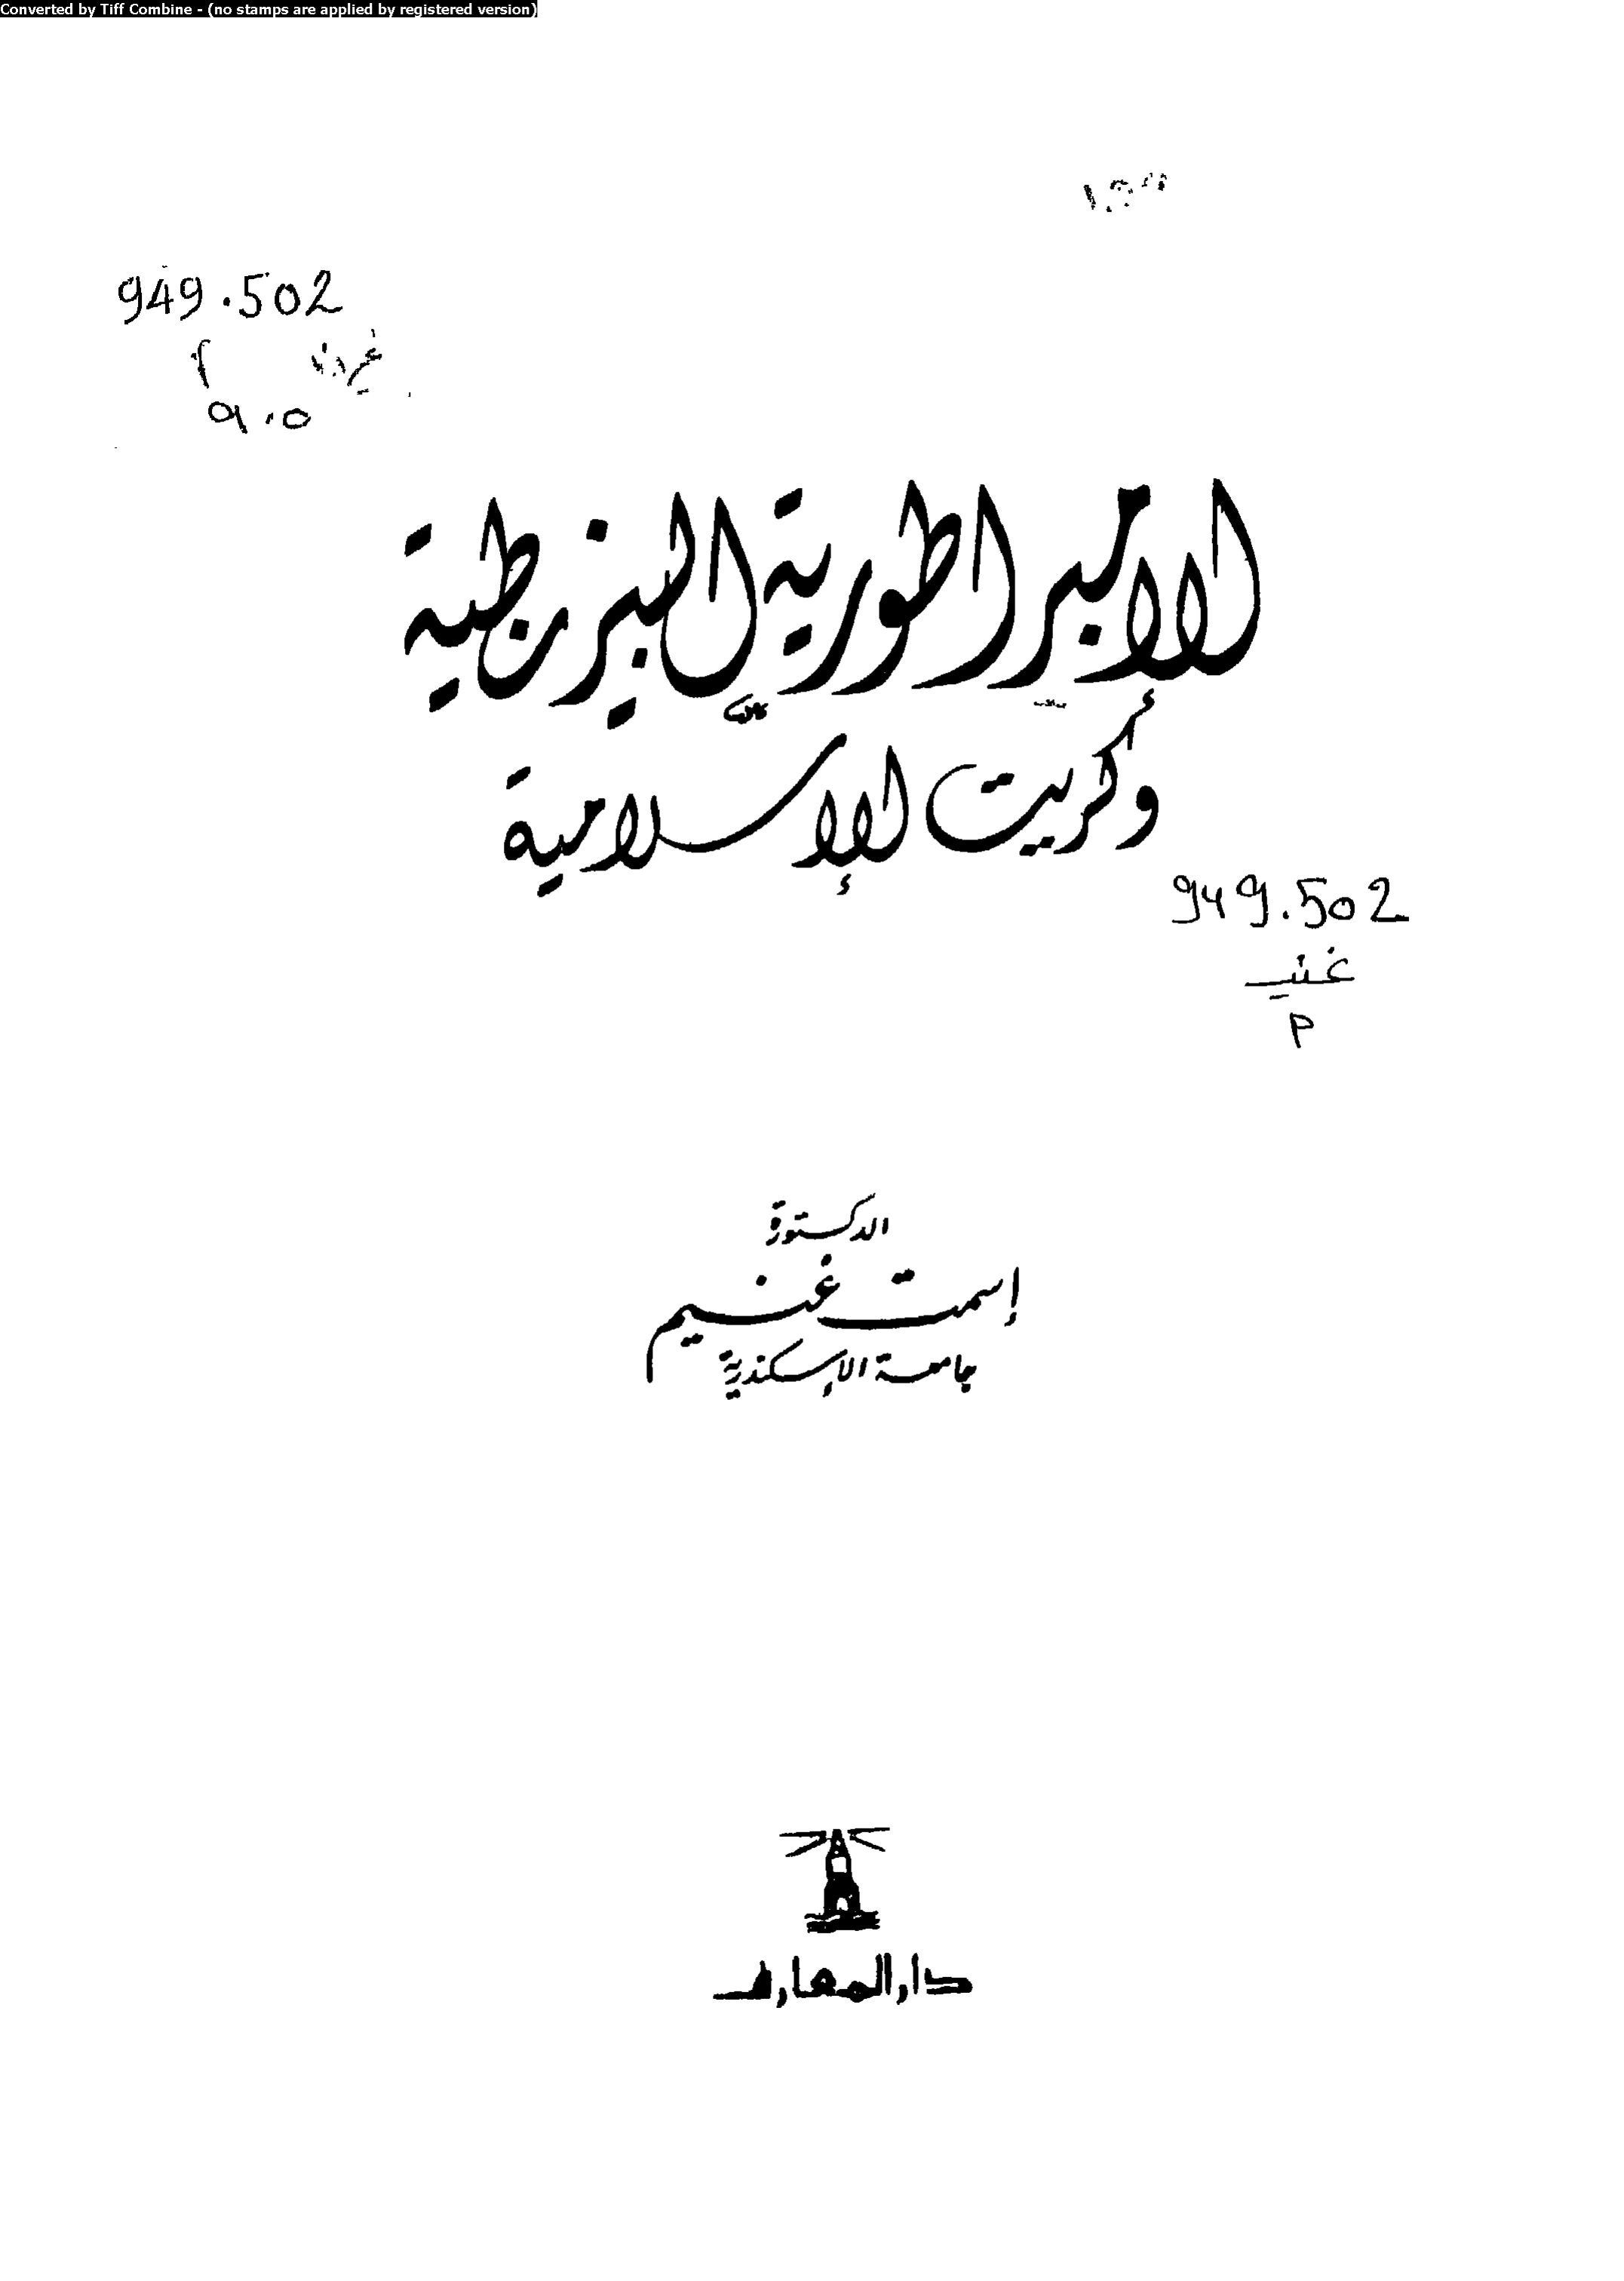 Converted by Tiff Combine - (no stamps are applied by registered version)
949.502
م
٩٠٥
الامبراطورية البيزنطية
وكريت الإسلامية
949.502
غنيـ
م
الدكتورة
إسمت غنيم
جامعة الإسكندرية
دار المعارف